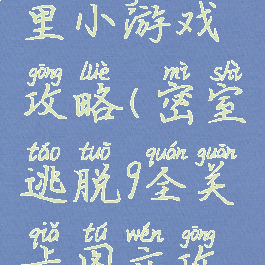 里小游戏
gōng lüè mì shì
攻略(密室
táo tuō quán guān
逃脱9全关
qiǎ tú wén gōng
卡图文攻